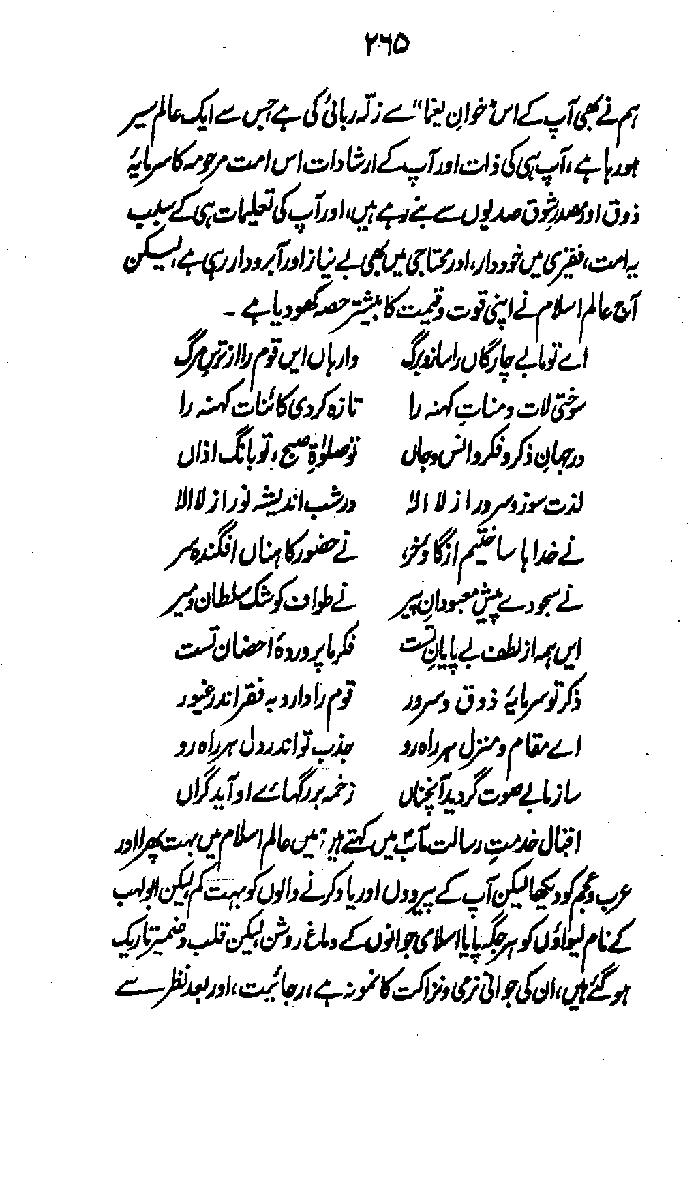 ۲۶۵
ہم نے بھی آپ کے اس "خوانِ یغما" سے زلّہ ربائی کی ہے جس سے ایک عالم سیر
ہو رہا ہے، آپ ہی کی ذات اور آپ کے ارشادات اس امت مرحومہ کا سرمایۂ
ذوق اور مصدر شوق صدیوں سے بنے رہے ہیں، اور آپ کی تعلیمات ہی کے سبب
یہ امت، فقیری میں خوددار، اور محتاجی میں بھی بے نیاز اور آبرودار رہی ہے، لیکن
آج عالم اسلام نے اپنی قوت و قیمت کا بیشتر حصہ کھو دیا ہے ۔
اے تو ما بے چارگاں را ساز و برگ وارہاں ایں قوم را از ترسِ مرگ
سوختی لات و مناتِ کہنہ را تازہ کردی کائنات کہنہ را
در جہانِ ذکر و فکر و انس و جاں تو صلوٰۃِ صبح، تو بانگ اذاں
لذت سوز و سرور از لا الٰہ در شب اندیشہ نور از لا الٰہ
نے خدا ہا ساختیم از گاؤ خر نے حضور کاہناں افگندہ سر
نے سجودے پیش معبودانِ پیر نے طواف کوشک سلطان و میر
ایں ہمہ از لطف بے پایانِ تست فکر ما پروردۂ احضان تست
ذکر تو سرمایۂ ذوق و سرور قوم را دارد بہ فقر اندر غیور
اے مقام و منزل ہر راہ رو جذب تو اندر دل ہر راہ رو
ساز ما بے صوت گردید آنچناں زخمہ بر رگہائے او آید گراں
اقبال خدمتِ رسالت مآبؐ میں کہتے ہیں؛ میں عالم اسلام میں بہت پھرا اور
عرب و عجم کو دیکھا لیکن آپ کے پیرووں اور یاد کرنے والوں کو بہت کم، لیکن ابولہب
کے نام لیواؤں کو ہر جگہ پایا اسلامی جوانوں کے دماغ روشن، لیکن قلب و ضمیر تاریک
ہو گئے ہیں، ان کی جوانی نرمی و نزاکت کا نمونہ ہے، رجائیت، اور بعد نظر سے